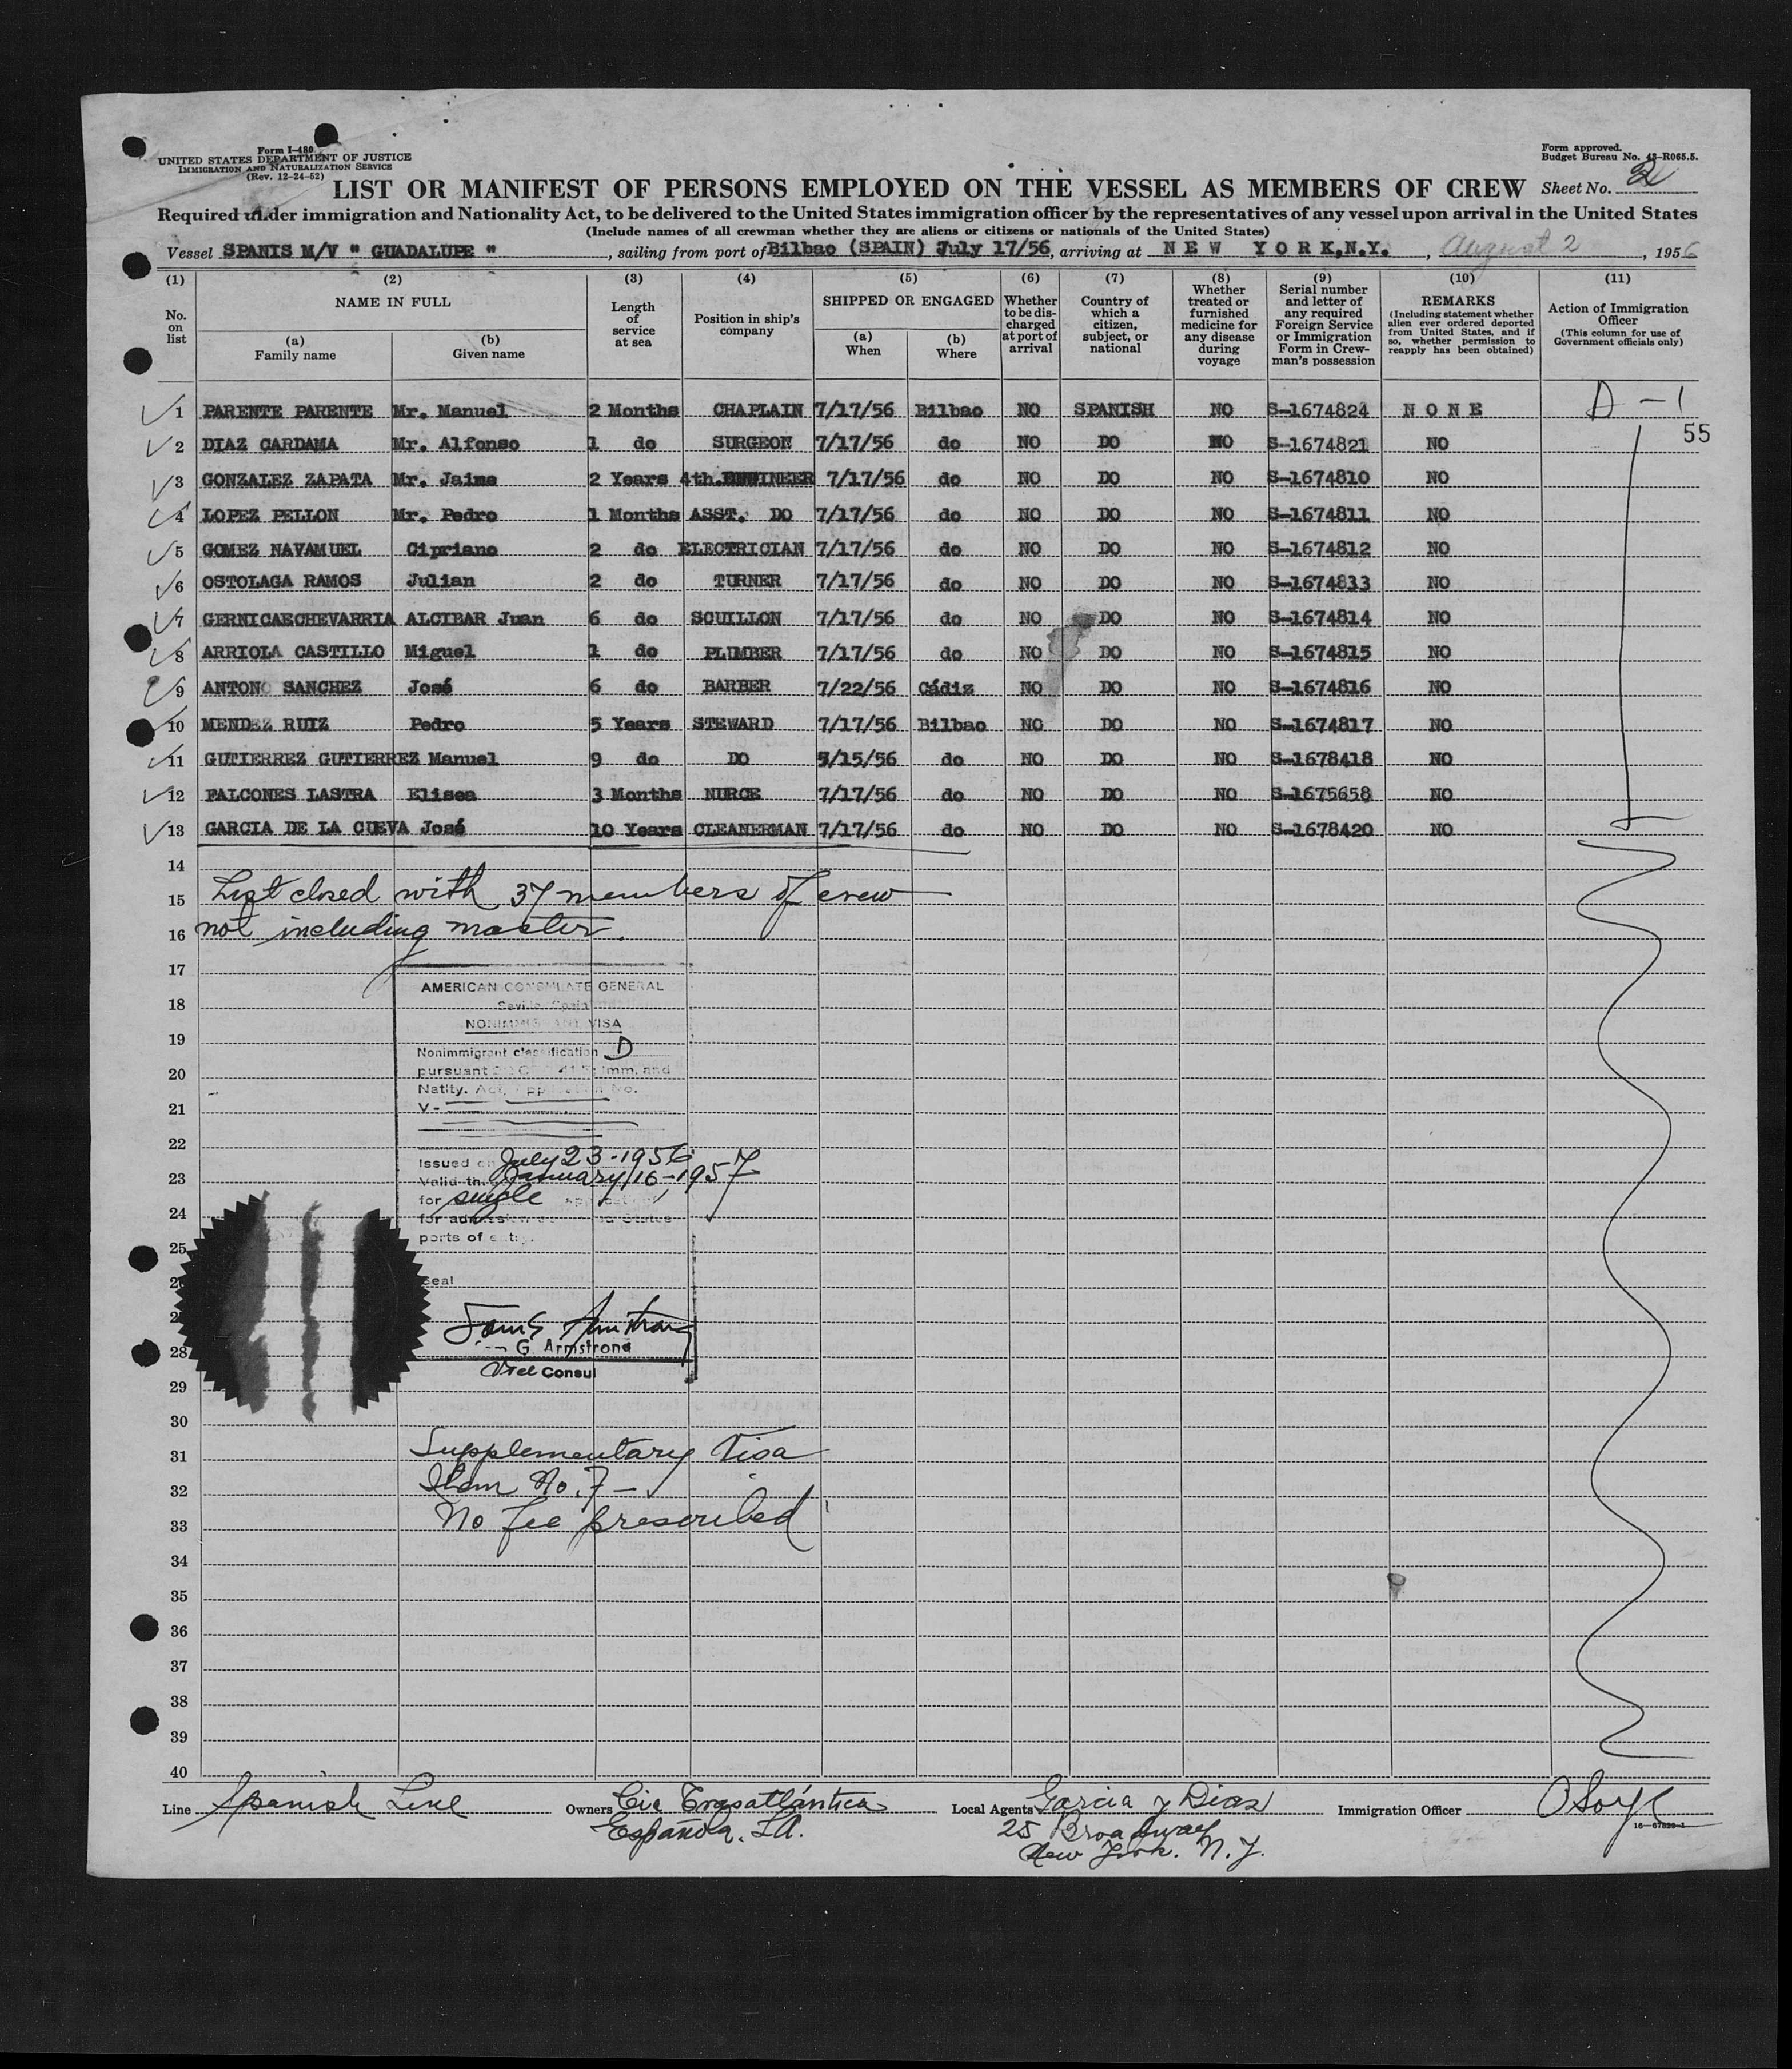 Form I-480
UNITED STATES DEPARTMENT OF JUSTICE
IMMIGRATION AND NATURALIZATION SERVICE
(Rev. 12-24-52)
Form approved.
Budget Bureau No. 43-R065.5.
LIST OR MANIFEST OF PERSONS EMPLOYED ON THE VESSEL AS MEMBERS OF CREW
Sheet No. 2
Required under immigration and Nationality Act, to be delivered to the United States immigration officer by the representatives of any vessel upon arrival in the United States
(Include names of all crewman whether they are aliens or citizens or nationals of the United States)
Vessel SPANIS M/V " GUADALUPE ", sailing from port of Bilbao (SPAIN) July 17/56, arriving at NEW YORK,N.Y., August 2, 1956
(1) (2) (3) (4) (5) (6) (7) (8) (9) (10) (11)
No. on list
NAME IN FULL
(a) Family name
(b) Given name
Length of service at sea
Position in ship's company
SHIPPED OR ENGAGED
(a) When
(b) Where
Whether to be discharged at port of arrival
Country of which a citizen, subject, or national
Whether treated or furnished medicine for any disease during voyage
Serial number and letter of any required Foreign Service or Immigration Form in Crewman's possession
REMARKS
(Including statement whether alien ever ordered deported from United States, and if so, whether permission to reapply has been obtained)
Action of Immigration Officer
(This column for use of Government officials only)
1 PARENTE PARENTE Mr. Manuel 2 Months CHAPLAIN 7/17/56 Bilbao NO SPANISH NO S-1674824 NONE D-1
55
2 DIAZ CARDAMA Mr. Alfonso 1 do SURGEON 7/17/56 do NO DO NO S-1674821 NO
3 GONZALEZ ZAPATA Mr. Jaime 2 Years 4th.ENGINEER 7/17/56 do NO DO NO S-1674810 NO
4 LOPEZ PELLON Mr. Pedro 1 Months ASST. DO 7/17/56 do NO DO NO S-1674811 NO
5 GOMEZ NAVAMUEL Cipriano 2 do ELECTRICIAN 7/17/56 do NO DO NO S-1674812 NO
6 OSTOLAGA RAMOS Julian 2 do TURNER 7/17/56 do NO DO NO S-1674833 NO
7 GERNICAECHEVARRIA ALCIBAR Juan 6 do SCUILLON 7/17/56 do NO DO NO S-1674814 NO
8 ARRIOLA CASTILLO Miguel 1 do PLUMBER 7/17/56 do NO DO NO S-1674815 NO
9 ANTON SANCHEZ José 6 do BARBER 7/22/56 Cádiz NO DO NO S-1674816 NO
10 MENDEZ RUIZ Pedro 5 Years STEWARD 7/17/56 Bilbao NO DO NO S-1674817 NO
11 GUTIERREZ GUTIERREZ Manuel 9 do DO 5/15/56 do NO DO NO S-1678418 NO
12 FALCONES LASTRA Elisea 3 Months NURCE 7/17/56 do NO DO NO S-1675658 NO
13 GARCIA DE LA CUEVA José 10 Years CLEANERMAN 7/17/56 do NO DO NO S-1678420 NO
14
15 List closed with 37 members of crew
16 not including master.
17
AMERICAN CONSULATE GENERAL
18
Seville, Spain
NONIMMIGRANT VISA
19
Nonimmigrant classification D
20 pursuant Imm. and
Natlty. Act, Application No.
21 V-
22
Issued on July 23-1956
23 Valid th. January 16-1957
for single application
24 for admission United States
ports of entry.
25
Seal
G. Armstrong
28
Vice Consul
29
30
31 Supplementary Visa
32 Item No. 7 -
33 No fee prescribed
34
35
36
37
38
39
40
Line Spanish Line
Owners Cia Trasatlántica
Española, S.A.
Local Agents Garcia y Diaz
25 Broadway
New York. N.Y.
Immigration Officer